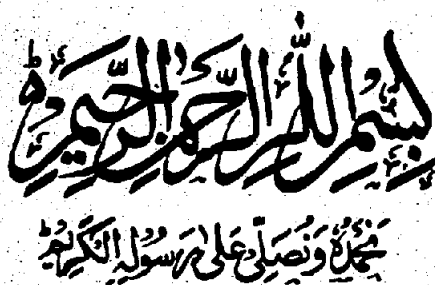 بِسْمِ اللّٰهِ الرَّحْمٰنِ الرَّحِيْمِ ؕ
نَحْمَدُهٗ وَنُصَلِّيْ عَلٰى رَسُوْلِهِ الْكَرِيْمِ ؕ